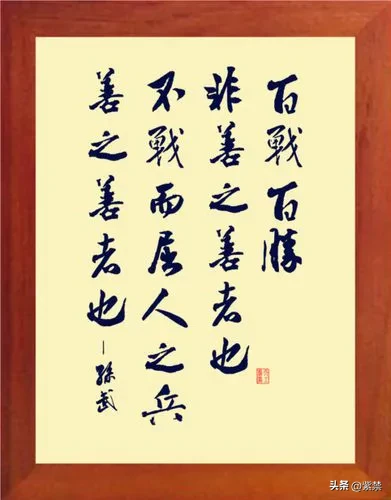 百戰百勝
非善之善者也
不戰而屈人之兵
善之善者也
—孫武
头条 @紫禁